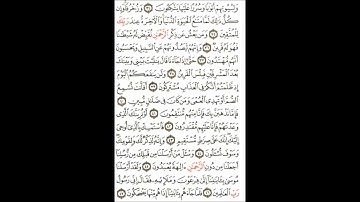 وَلِبُيُوتِهِمْ أَبْوَٰبًا وَسُرُرًا عَلَيْهَا يَتَّكِـُٔونَ ٣٤ وَزُخْرُفًا وَإِن
كُلُّ ذَٰلِكَ لَمَّا مَتَٰعُ ٱلْحَيَوٰةِ ٱلدُّنْيَا وَٱلْءَاخِرَةُ عِندَ رَبِّكَ
لِلْمُتَّقِينَ ٣٥ وَمَن يَعْشُ عَن ذِكْرِ ٱلرَّحْمَٰنِ نُقَيِّضْ لَهُۥ شَيْطَٰنًا
فَهُوَ لَهُۥ قَرِينٌ ٣٦ وَإِنَّهُمْ لَيَصُدُّونَهُمْ عَنِ ٱلسَّبِيلِ وَيَحْسَبُونَ
أَنَّهُم مُّهْتَدُونَ ٣٧ حَتَّىٰٓ إِذَا جَآءَنَا قَالَ يَٰلَيْتَ بَيْنِى وَبَيْنَكَ
بُعْدَ ٱلْمَشْرِقَيْنِ فَبِئْسَ ٱلْقَرِينُ ٣٨ وَلَن يَنفَعَكُمُ ٱلْيَوْمَ
إِذ ظَّلَمْتُمْ أَنَّكُمْ فِى ٱلْعَذَابِ مُشْتَرِكُونَ ٣٩ أَفَأَنتَ تُسْمِعُ
ٱلصُّمَّ أَوْ تَهْدِى ٱلْعُمْىَ وَمَن كَانَ فِى ضَلَٰلٍ مُّبِينٍ ٤٠
فَإِمَّا نَذْهَبَنَّ بِكَ فَإِنَّا مِنْهُم مُّنتَقِمُونَ ٤١ أَوْ نُرِيَنَّكَ ٱلَّذِى
وَعَدْنَٰهُمْ فَإِنَّا عَلَيْهِم مُّقْتَدِرُونَ ٤٢ فَٱسْتَمْسِكْ بِٱلَّذِىٓ أُوحِىَ
إِلَيْكَ إِنَّكَ عَلَىٰ صِرَٰطٍ مُّسْتَقِيمٍ ٤٣ وَإِنَّهُۥ لَذِكْرٌ لَّكَ وَلِقَوْمِكَ
وَسَوْفَ تُسْـَٔلُونَ ٤٤ وَسْـَٔلْ مَنْ أَرْسَلْنَا مِن قَبْلِكَ مِن رُّسُلِنَآ
أَجَعَلْنَا مِن دُونِ ٱلرَّحْمَٰنِ ءَالِهَةً يُعْبَدُونَ ٤٥ وَلَقَدْ أَرْسَلْنَا
مُوسَىٰ بِـَٔايَٰتِنَآ إِلَىٰ فِرْعَوْنَ وَمَلَإِي۟هِۦ فَقَالَ إِنِّى رَسُولُ
رَبِّ ٱلْعَٰلَمِينَ ٤٦ فَلَمَّا جَآءَهُم بِـَٔايَٰتِنَآ إِذَا هُم مِّنْهَا يَضْحَكُونَ ٤٧